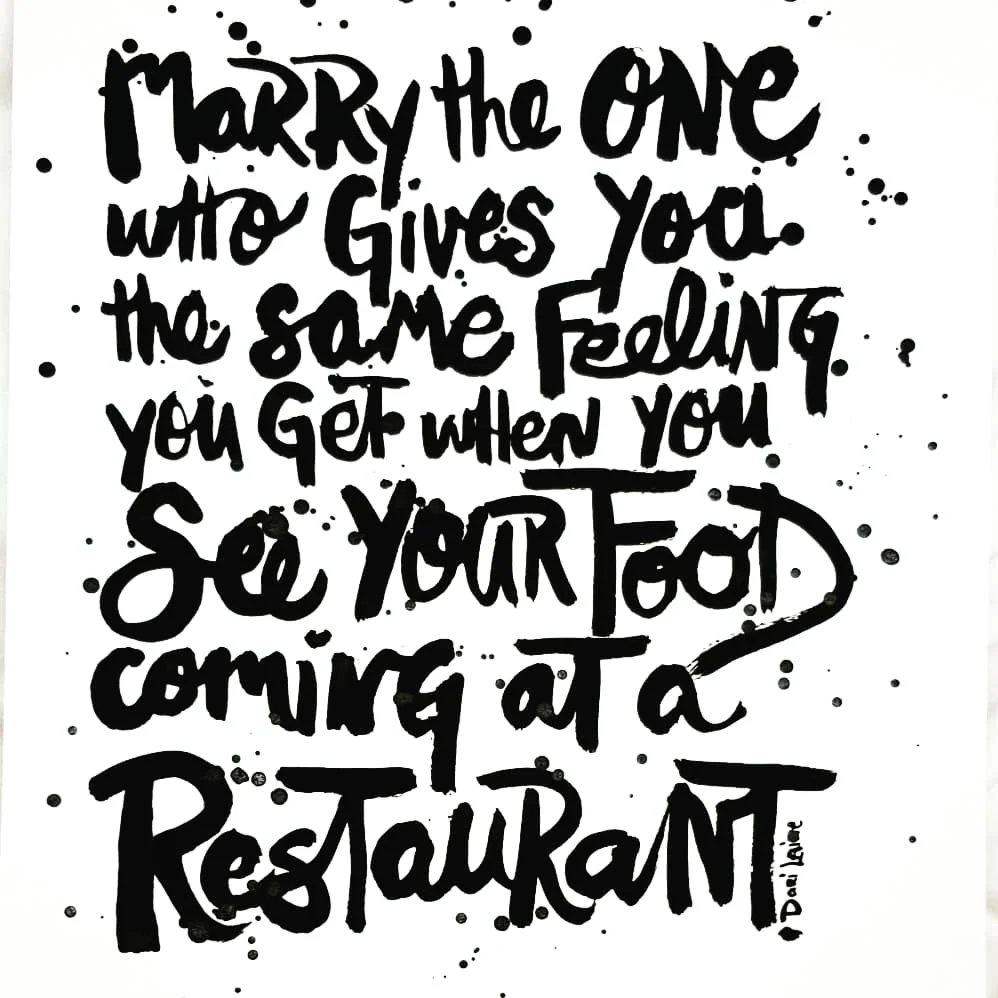 Marry the ONE
who Gives you
the same Feeling
you Get when you
See Your Food
coming at a
Restaurant
Dari Laine